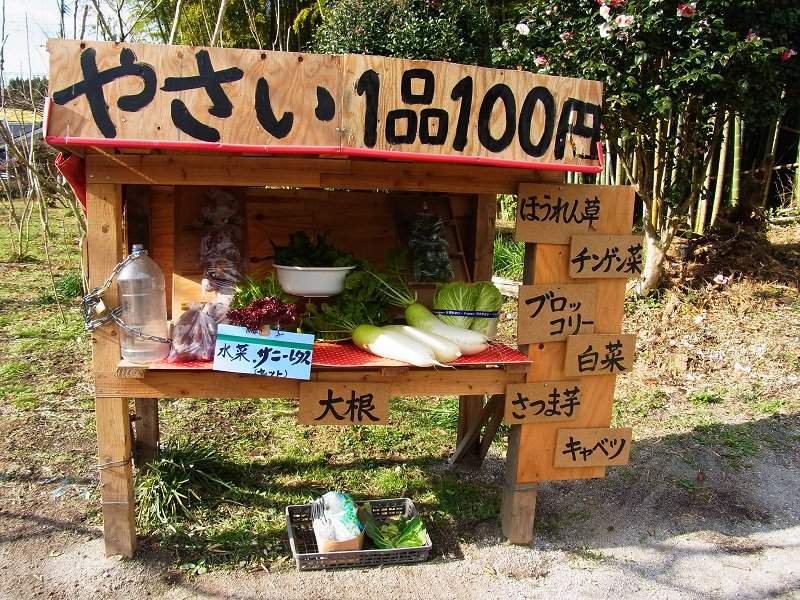 やさい 1品100円
ほうれん草
チンゲン菜
ブロッ
コリー
白菜
さつま芋
キャベツ
水菜・サニーレタス
(セット)
大根